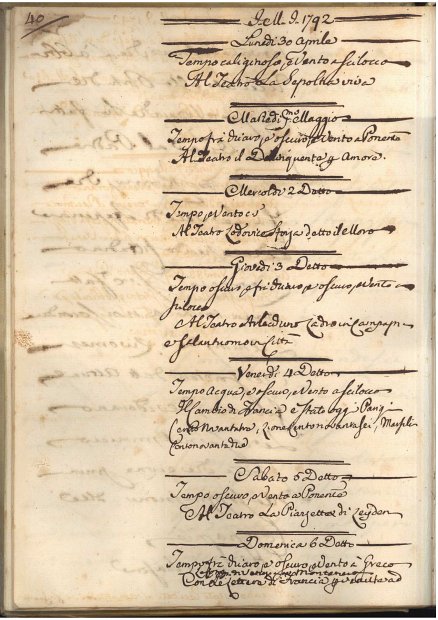 40
J. M. J. 1792
Lunedi 30 Aprile
Tempo caliginoso, e Vento a scilocco
Al Teatro La Sepolta viva
Martedi p.mo Maggio
Tempo frà chiaro, e oscuro, e Vento a Ponente
Al Teatro il Delinquente p Amore.
Mercoldi 2 Detto
Tempo, e Vento
Al Teatro Lodovico detto il Moro
Giovedi 3 Detto
Tempo oscuro, e frà chiaro, e oscuro, e Vento a
scilocco
Al Teatro Arlechino Ladro in Campagn
e Galantuomo in Città
Venerdi 4 Detto
Tempo Acqua, e oscuro, e Vento a scilocco
Il Cambio di Francia è stato Parigi
Centonovantatre, Lione Centonovantasei, Marsilia
Centonovantadue
Sabato 5 Detto
Tempo oscuro, e Vento a Ponente
Al Teatro La Piazzetta di Leyden
Domenica 6 Detto
Tempo frà chiaro, e oscuro, e Vento à Greco
Con le Lettere di Francia